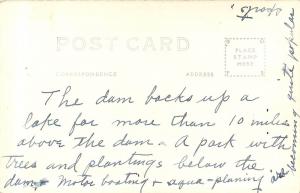 POST CARD
PLACE
STAMP
HERE
CORRESPONDENCE
ADDRESS
The dam backs up a
lake for more than 10 miles
above the dam. A park with
trees and plantings below the
dam. Motor boating & aqua-planing are
becoming quite popular
sport.